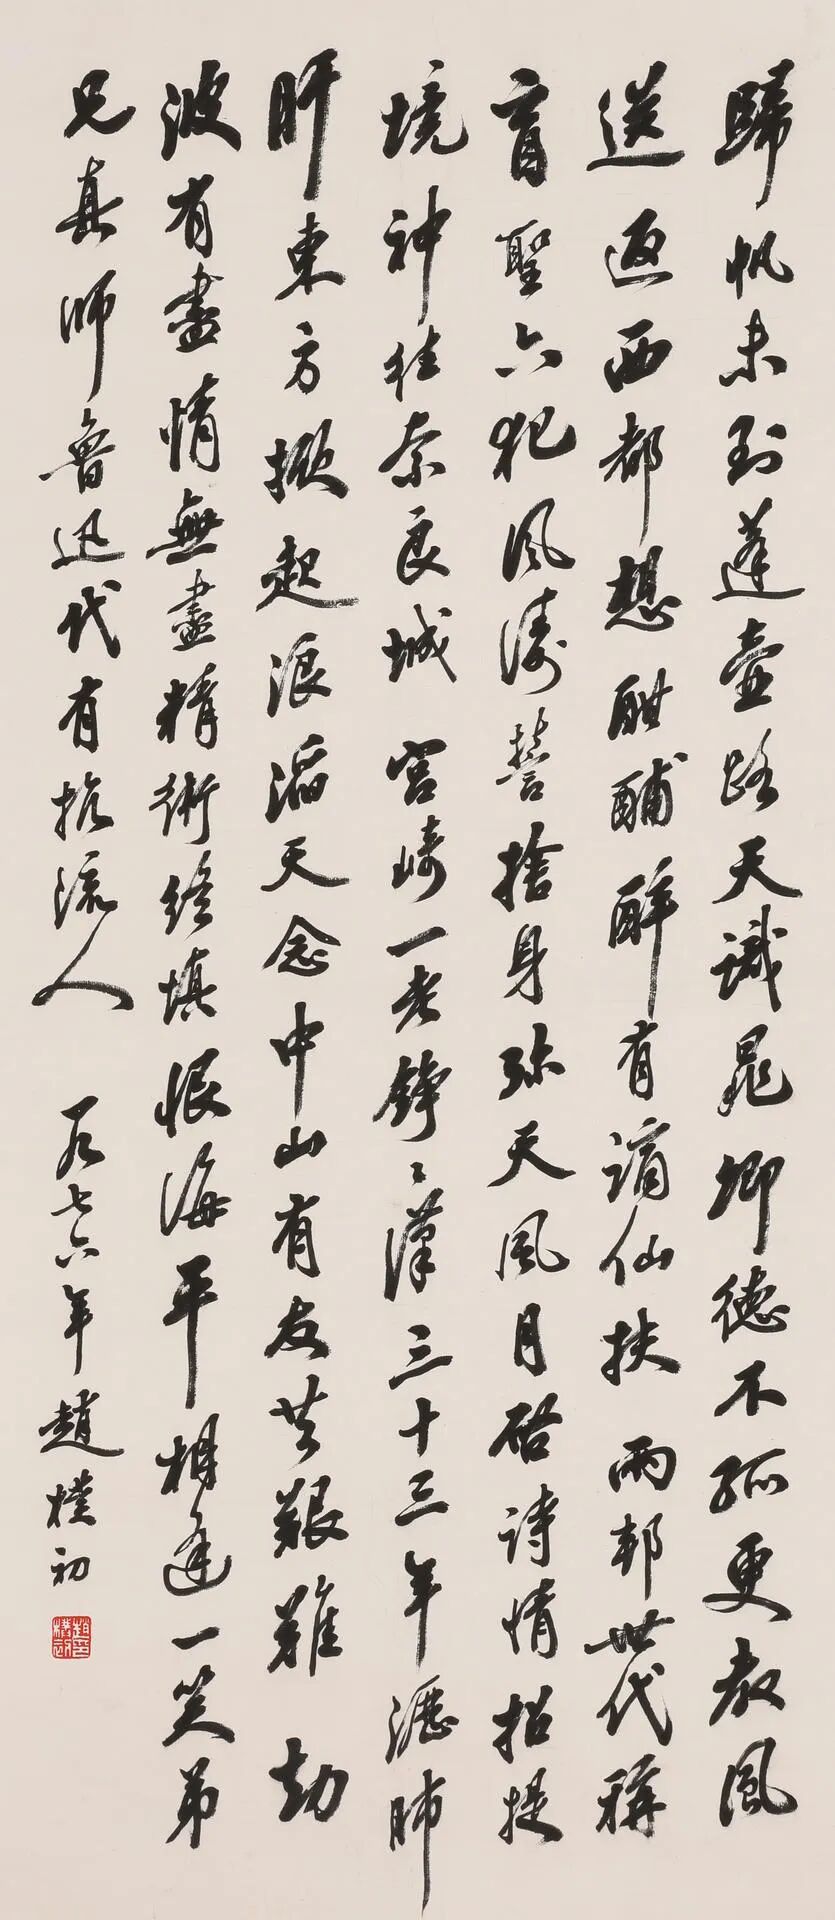 歸帆未到蓬壺路天識晁卿德不孤更教風
送返西都想酣酺醉有謫仙扶 兩邦世代稱
盲聖六犯風濤誓捨身弥天風月啓詩情招提
境神往奈良城 宮崎一老錚〻漢三十三年瀝肺
肝東方掀起浪滔天念中山有友共艱難 劫
波有盡情無盡精術終填恨海平相逢一笑弟
兄真師魯迅代有抗流人 一九七六年趙樸初
趙樸初印